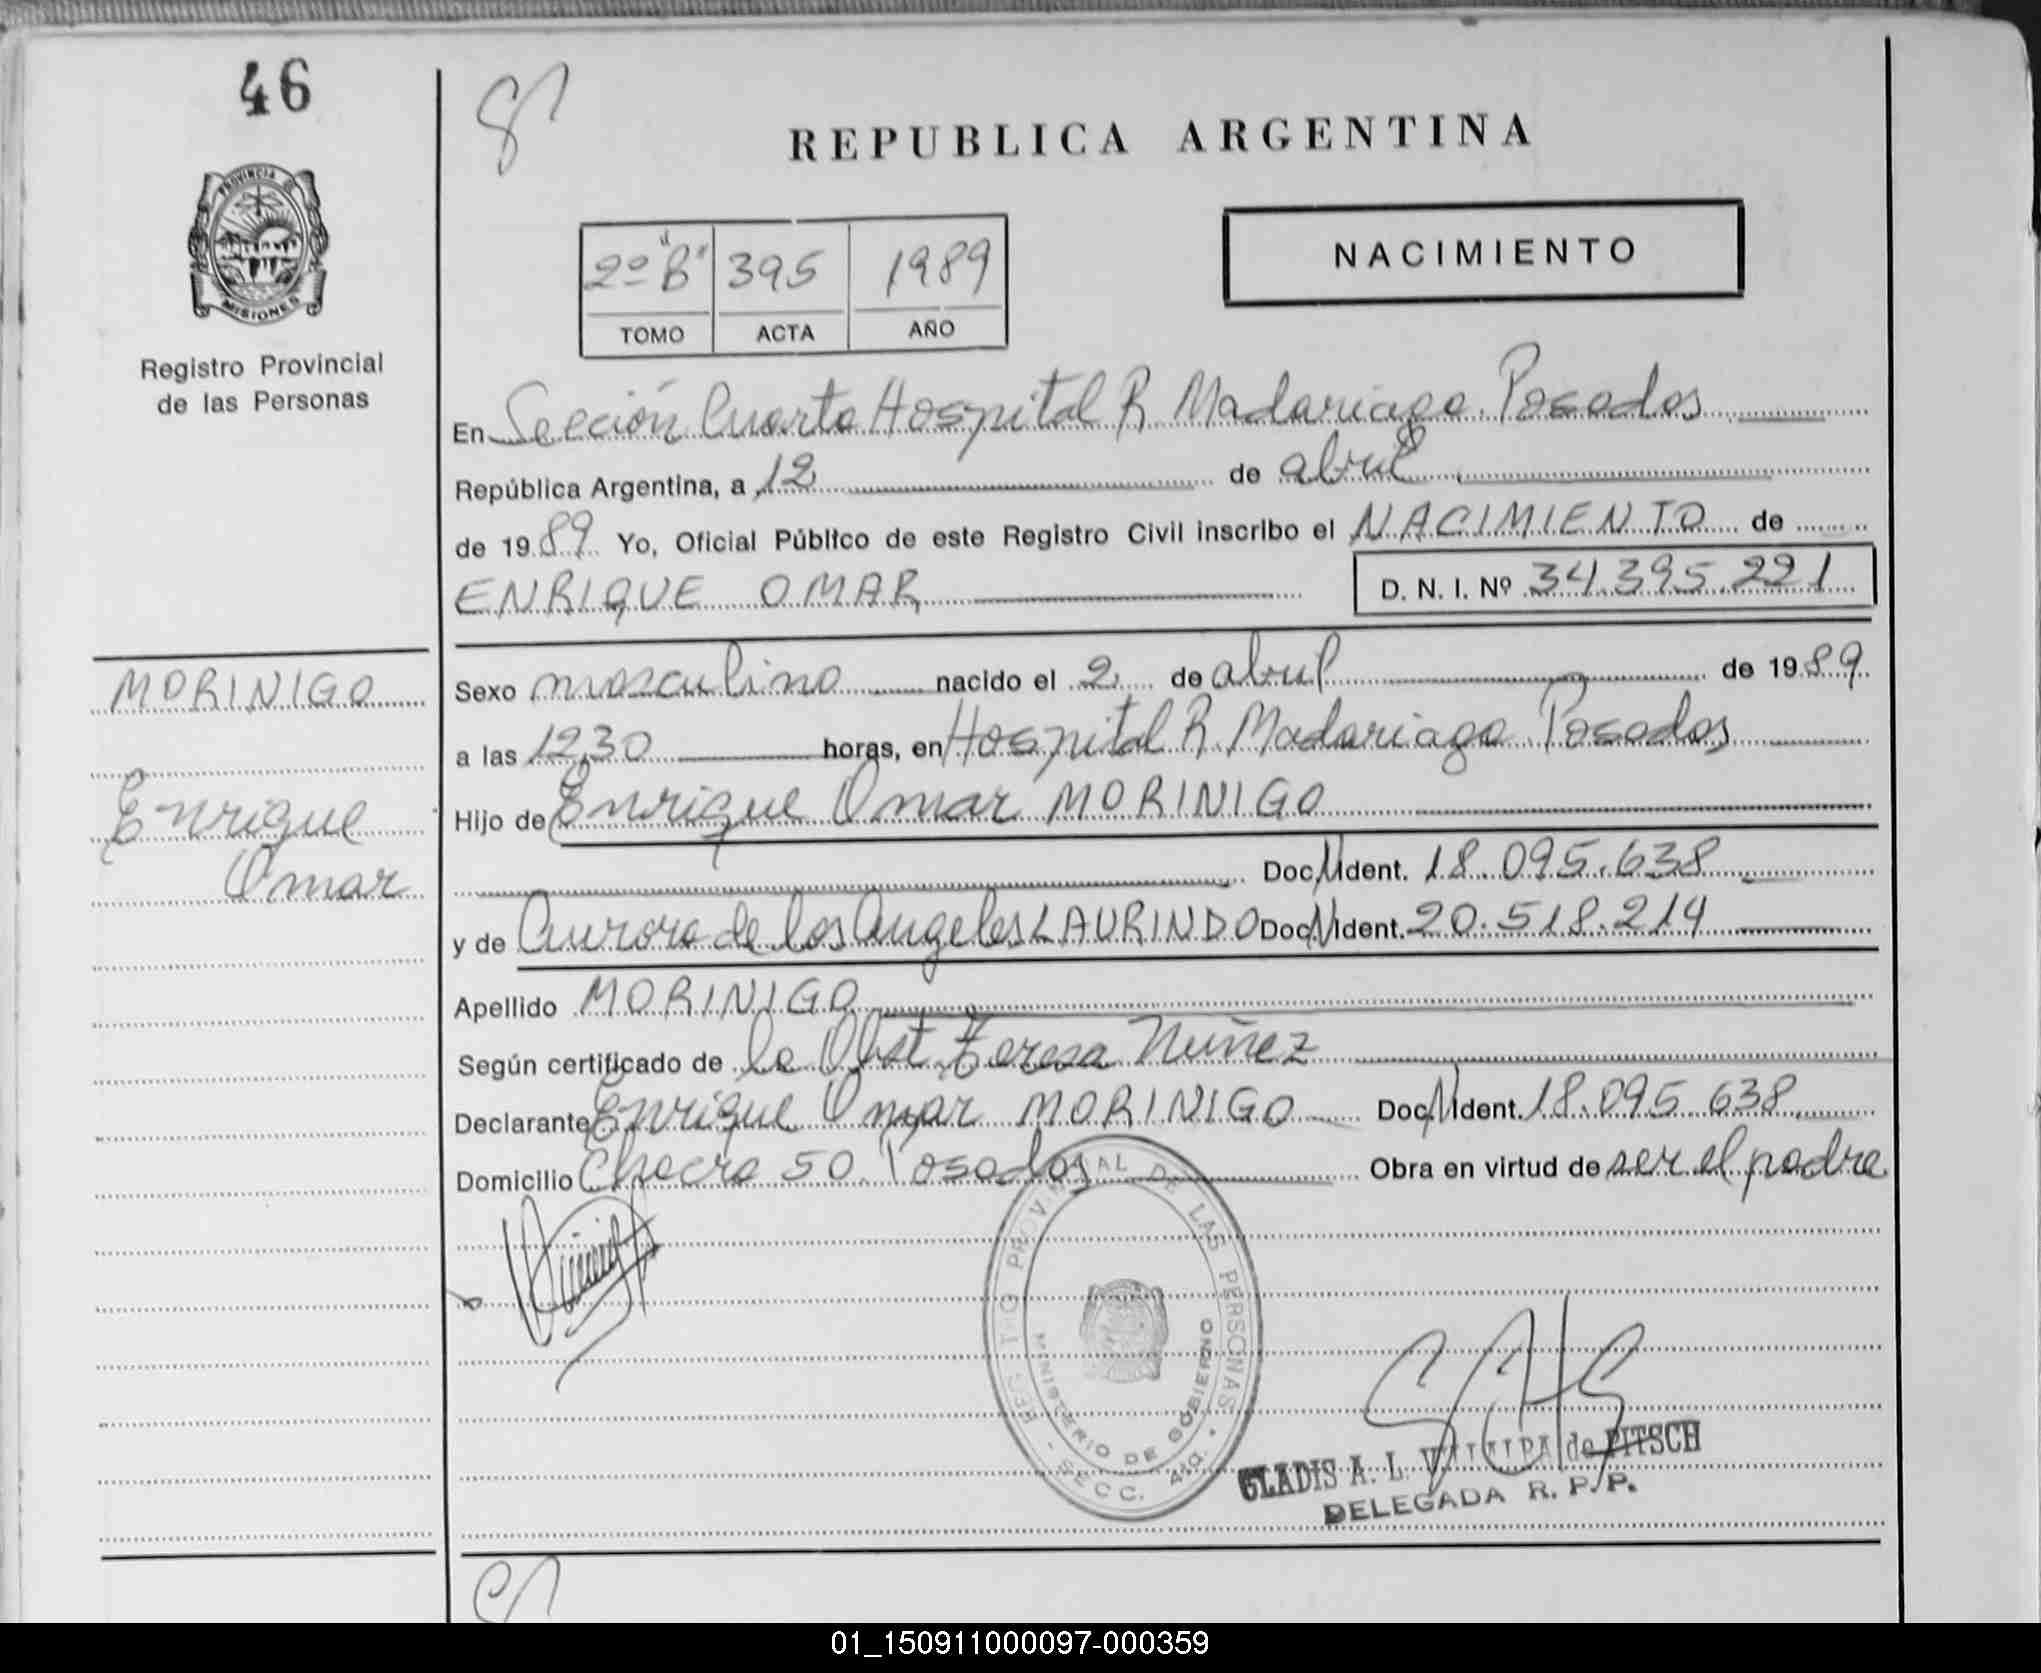 46
REPUBLICA ARGENTINA
PROVINCIA DE
MISIONES
Registro Provincial
de las Personas
2º "B" 395 1989
TOMO ACTA AÑO
NACIMIENTO
En Sección Cuarta Hospital R. Madariaga. Posadas
República Argentina, a 12 de abril
de 1989 Yo, Oficial Público de este Registro Civil inscribo el NACIMIENTO de
ENRIQUE OMAR D. N. I. Nº 34.395.221
MORINIGO
Enrique
Omar
Sexo masculino nacido el 2 de abril de 1989
a las 12,30 horas, en Hospital R. Madariaga. Posadas
Hijo de Enrique Omar MORINIGO
Doc.N.Ident. 18.095.638
y de Aurora de los Angeles LAURINDO Doc.N.Ident. 20.518.214
Apellido MORINIGO
Según certificado de la Obst. Teresa Nuñez
Declarante Enrique Omar MORINIGO Doc.N.Ident. 18.095.638
Domicilio Chacra 50. Posadas Obra en virtud de ser el padre
REGISTRO PROVINCIAL DE LAS PERSONAS
MINISTERIO DE GOBIERNO
SECC. 4ta.
GLADIS A. L. de PITSCH
DELEGADA R. P. P.
01_150911000097-000359